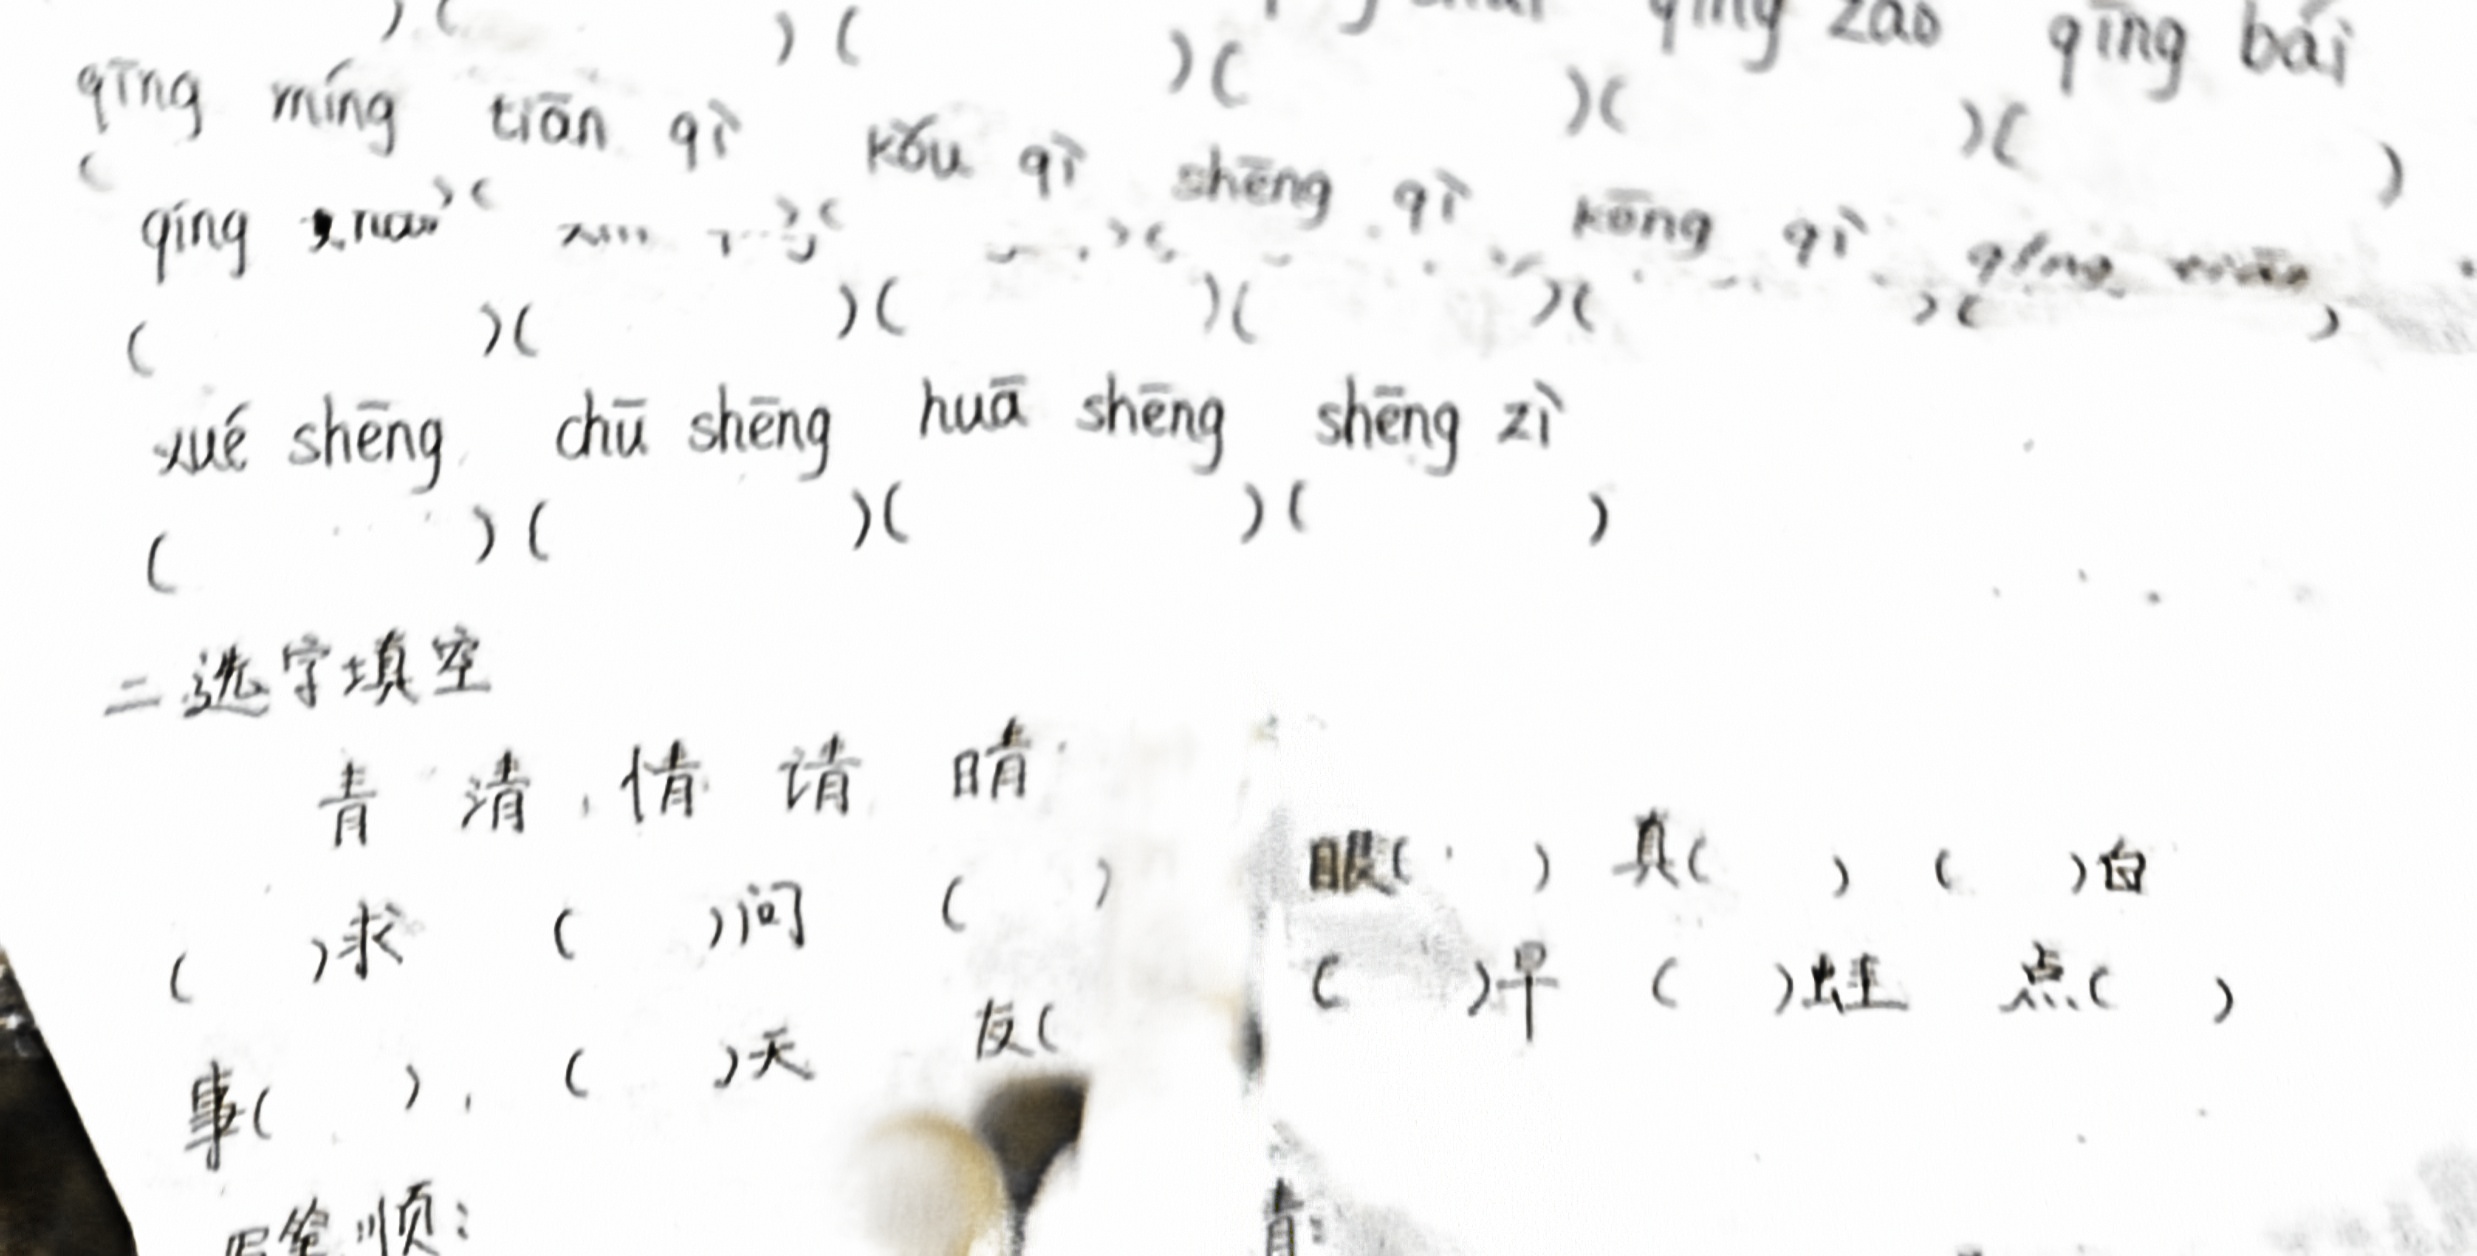 zǎo qīng bái
) ( ) ( ) ( ) ( ) ( )
qīng míng tiān qì kǒu qì shēng qì kōng qì
( ) ( ) ( ) ( ) ( ) ( )
qíng
( ) ( ) ( ) ( ) ( ) ( )
xué shēng chū shēng huā shēng shēng zì
( ) ( ) ( ) ( )
二选字填空
青 清 情 请 晴
( )求 ( )问 ( ) 眼( ) 真( ) ( )白
事( ), ( )天 友( ( )早 ( )蛙 点( )
写笔顺: